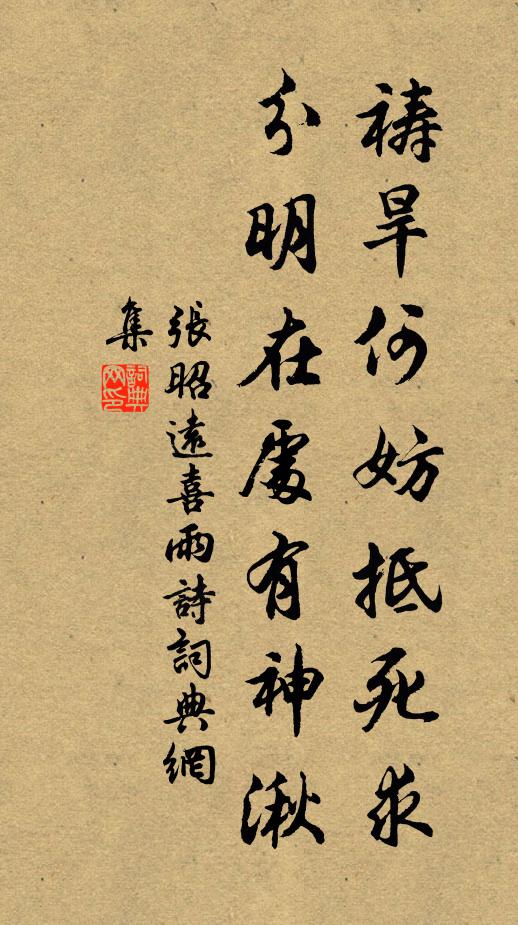 禱旱何妨抵死求
分明在處有神湫
張昭遠喜雨詩詞典網
集
詞典網印